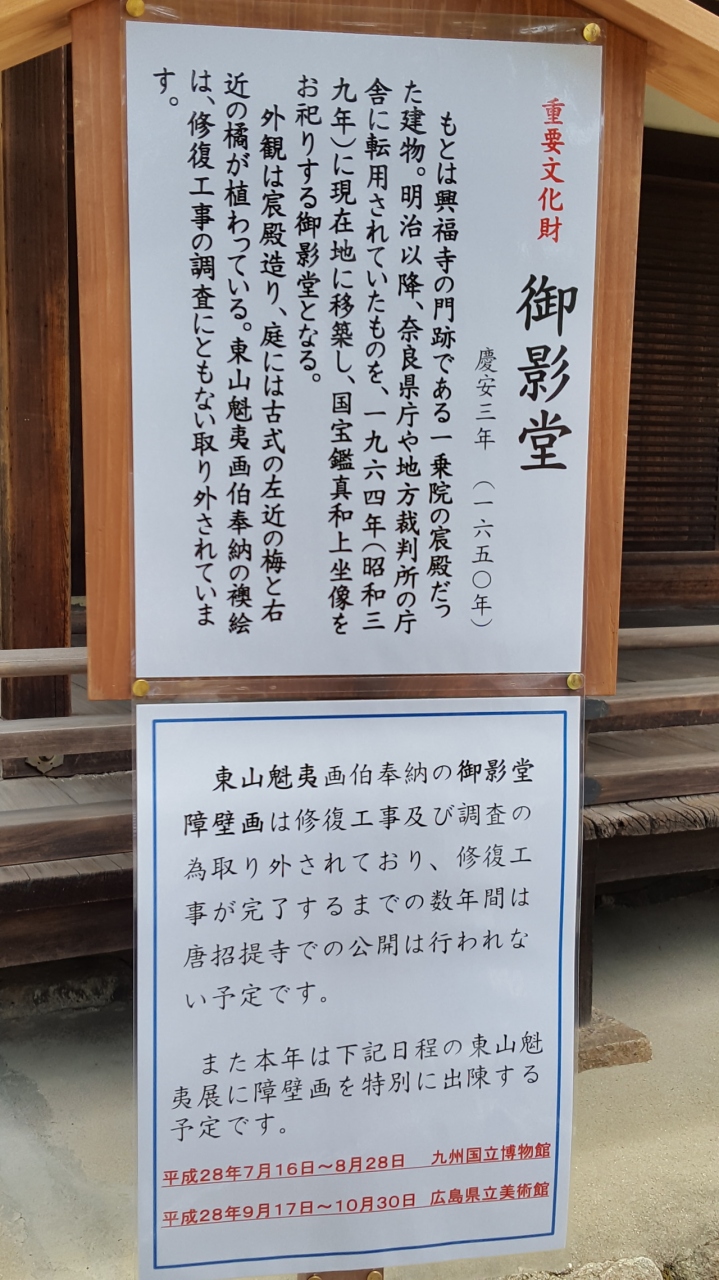 重要文化財
御影堂
慶安三年 (一六五〇年)
もとは興福寺の門跡である一乗院の宸殿だっ
た建物。明治以降、奈良県庁や地方裁判所の庁
舎に転用されていたものを、一九六四年(昭和三
九年)に現在地に移築し、国宝鑑真和上坐像を
お祀りする御影堂となる。
外観は宸殿造り、庭には古式の左近の梅と右
近の橘が植わっている。東山魁夷画伯奉納の襖絵
は、修復工事の調査にともない取り外されていま
す。
東山魁夷画伯奉納の御影堂
障壁画は修復工事及び調査の
為取り外されており、修復工
事が完了するまでの数年間は
唐招提寺での公開は行われな
い予定です。
また本年は下記日程の東山魁
夷展に障壁画を特別に出陳する
予定です。
平成28年7月16日～8月28日 九州国立博物館
平成28年9月17日～10月30日 広島県立美術館